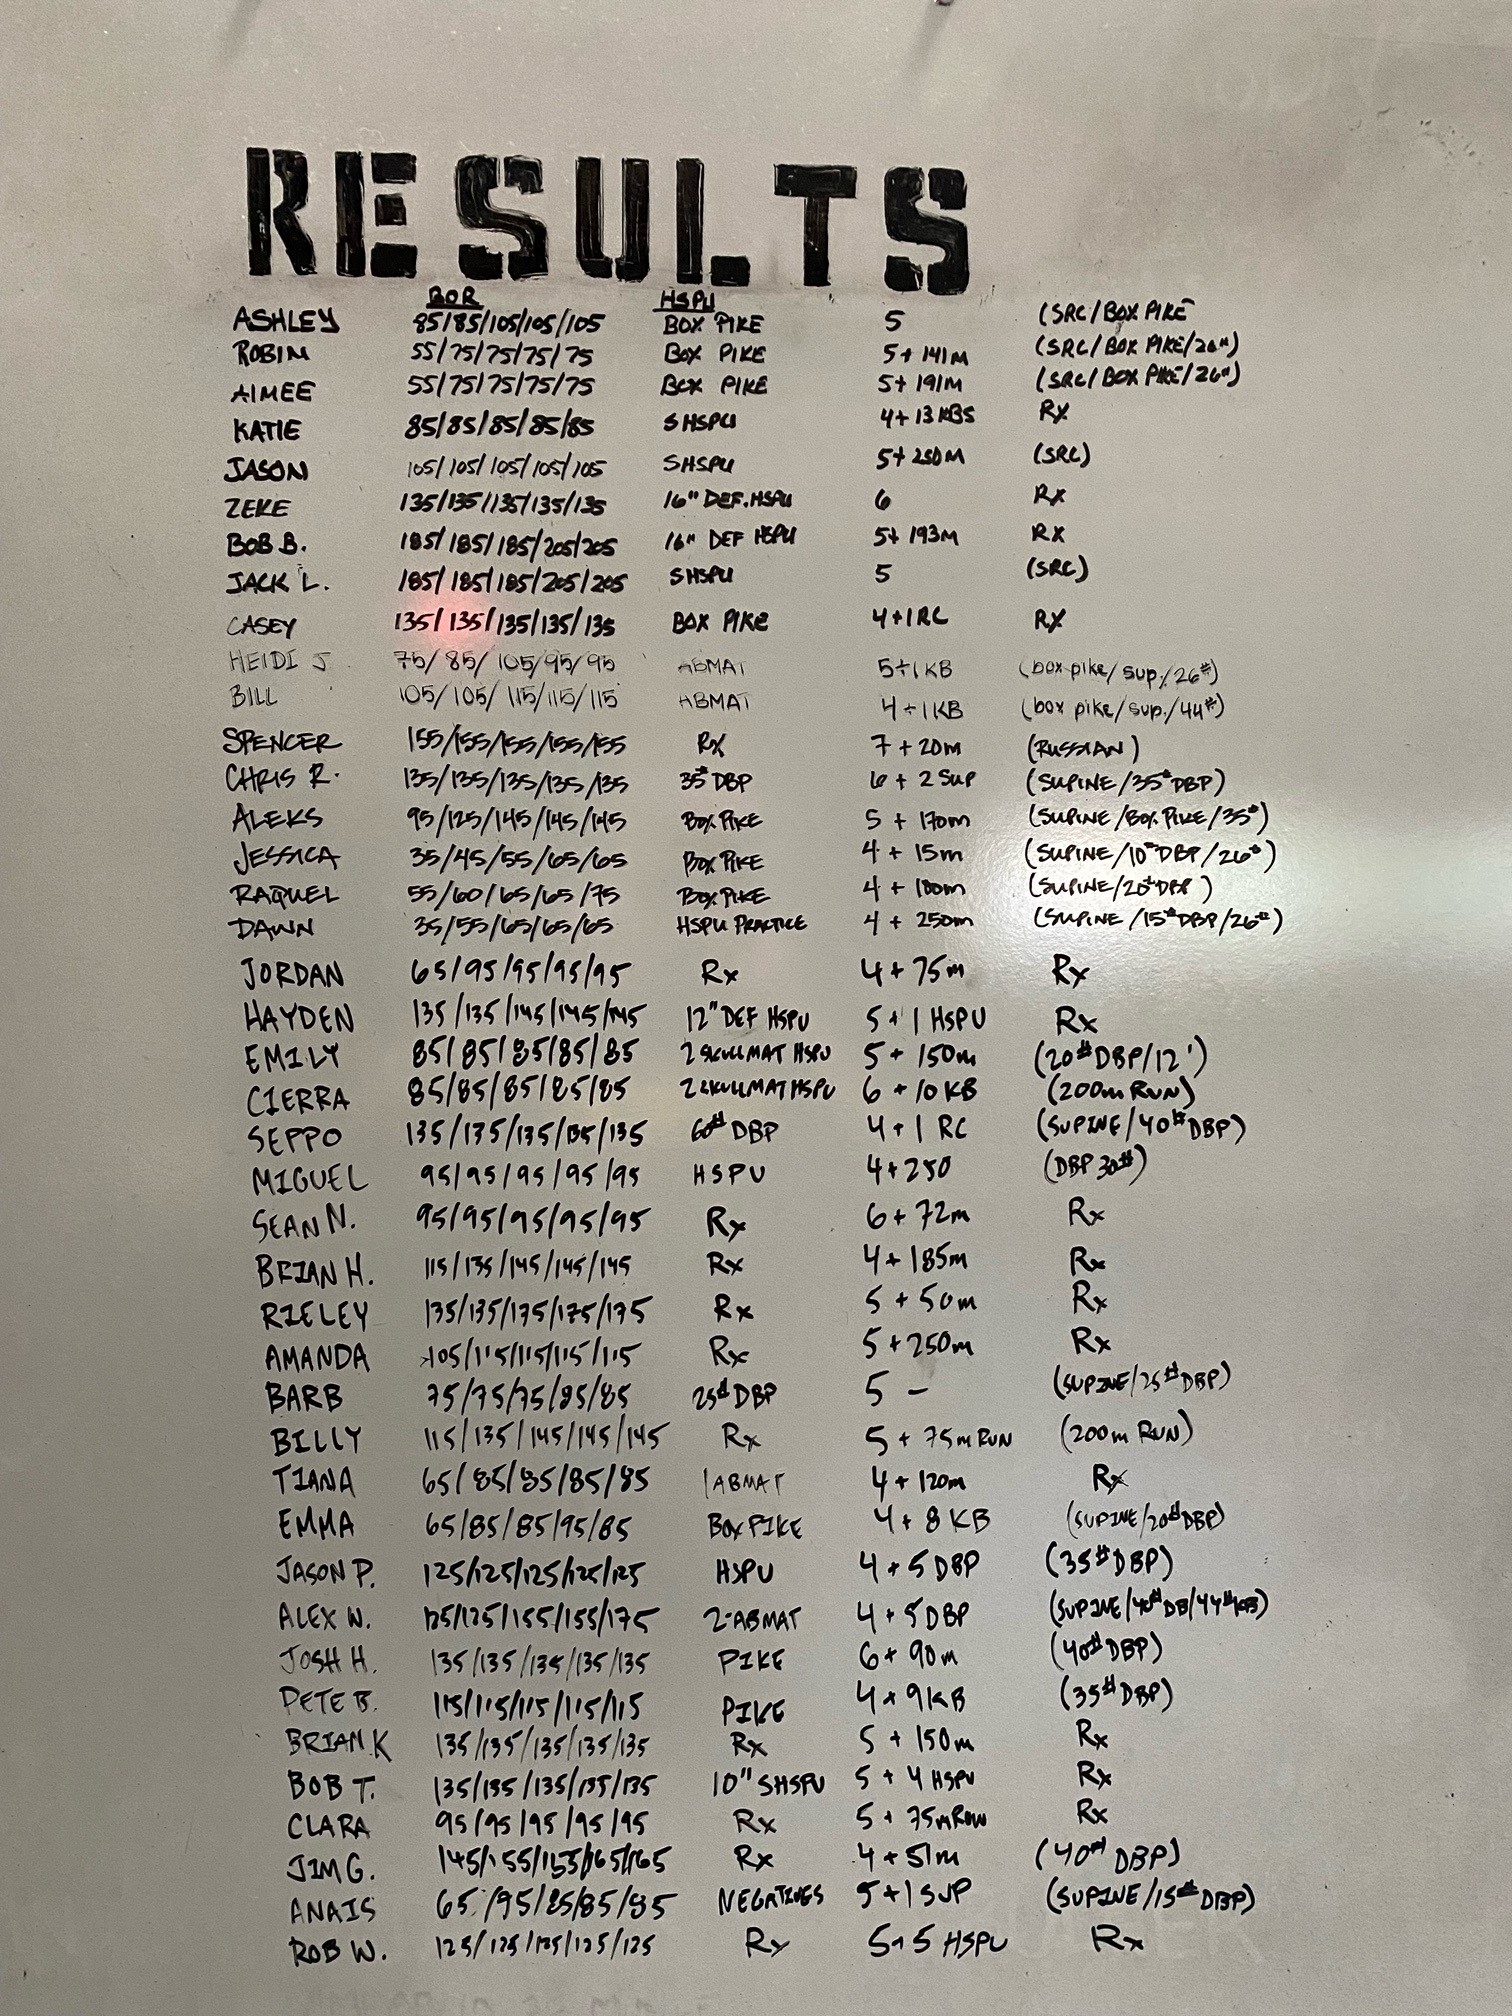 RESULTS
BOR HSPU
ASHLEY 85/85/105/105/105 BOX PIKE 5 (SRC/BOX PIKE
ROBIN 55/75/75/75/75 BOX PIKE 5+141M (SRC/BOX PIKE/26#)
AIMEE 55/75/75/75/75 BOX PIKE 5+191M (SRC/BOX PIKE/26#)
KATIE 85/85/85/85/85 SHSPU 4+13 KBS RX
JASON 105/105/105/105/105 SHSPU 5+250M (SRC)
ZEKE 135/135/135/135/135 16" DEF. HSPU 6 RX
BOB B. 185/185/185/205/205 16" DEF HSPU 5+193M RX
JACK L. 185/185/185/205/205 SHSPU 5 (SRC)
CASEY 135/135/135/135/135 BOX PIKE 4+1RC RX
HEIDI J 75/85/105/95/95 ABMAT 5+1KB (box pike/sup./26#)
BILL 105/105/115/115/115 ABMAT 4+1KB (box pike/sup./44#)
SPENCER 155/155/155/155/155 RX 7+20m (RUSSIAN)
CHRIS R. 135/135/135/135/135 35# DBP 6+2 SUP (SUPINE/35# DBP)
ALEKS 95/125/145/145/145 BOX PIKE 5+170m (SUPINE/BOX PIKE/35#)
JESSICA 35/45/55/65/65 BOX PIKE 4+15m (SUPINE/10# DBP/26#)
RAQUEL 55/60/65/65/75 BOX PIKE 4+180m (SUPINE/20# DBP)
DAWN 35/55/65/65/65 HSPU PRACTICE 4+250m (SUPINE/15# DBP/26#)
JORDAN 65/95/95/95/95 Rx 4+75m Rx
HAYDEN 135/135/145/145/145 12" DEF HSPU 5+1 HSPU Rx
EMILY 85/85/85/85/85 2 SKULLMAT HSPU 5+150m (20# DBP/12')
CIERRA 85/85/85/85/85 2 SKULLMAT HSPU 6+10 KB (200m RUN)
SEPPO 135/135/135/135/135 60# DBP 4+1 RC (SUPINE/40# DBP)
MIGUEL 95/95/95/95/95 HSPU 4+250 (DBP 30#)
SEAN N. 95/95/95/95/95 Rx 6+72m Rx
BRIAN H. 115/135/145/145/145 Rx 4+185m Rx
RIELEY 135/135/175/175/175 Rx 5+50m Rx
AMANDA 105/115/115/115/115 Rx 5+250m Rx
BARB 75/75/75/85/85 25# DBP 5 - (SUPINE/25# DBP)
BILLY 115/135/145/145/145 Rx 5+75m RUN (200m RUN)
TIANA 65/85/85/85/85 1 ABMAT 4+120m Rx
EMMA 65/85/85/95/85 BOX PIKE 4+8 KB (SUPINE/20# DBP)
JASON P. 125/125/125/125/125 HSPU 4+5 DBP (35# DBP)
ALEX W. 125/125/155/155/175 2-ABMAT 4+5 DBP (SUPINE/40# DB/44# KB)
JOSH H. 135/135/135/135/135 PIKE 6+90m (40# DBP)
PETE B. 115/115/115/115/115 PIKE 4+9KB (35# DBP)
BRIAN K 135/135/135/135/135 Rx 5+150m Rx
BOB T. 135/135/135/135/135 10" SHSPU 5+4 HSPU Rx
CLARA 95/95/95/95/95 Rx 5+75m ROW Rx
JIM G. 145/155/155/165/165 Rx 4+51m (40# DBP)
ANAIS 65/95/85/85/85 NEGATIVES 5+1 SUP (SUPINE/15# DBP)
ROB W. 125/125/125/125/125 Rx 5+5 HSPU Rx